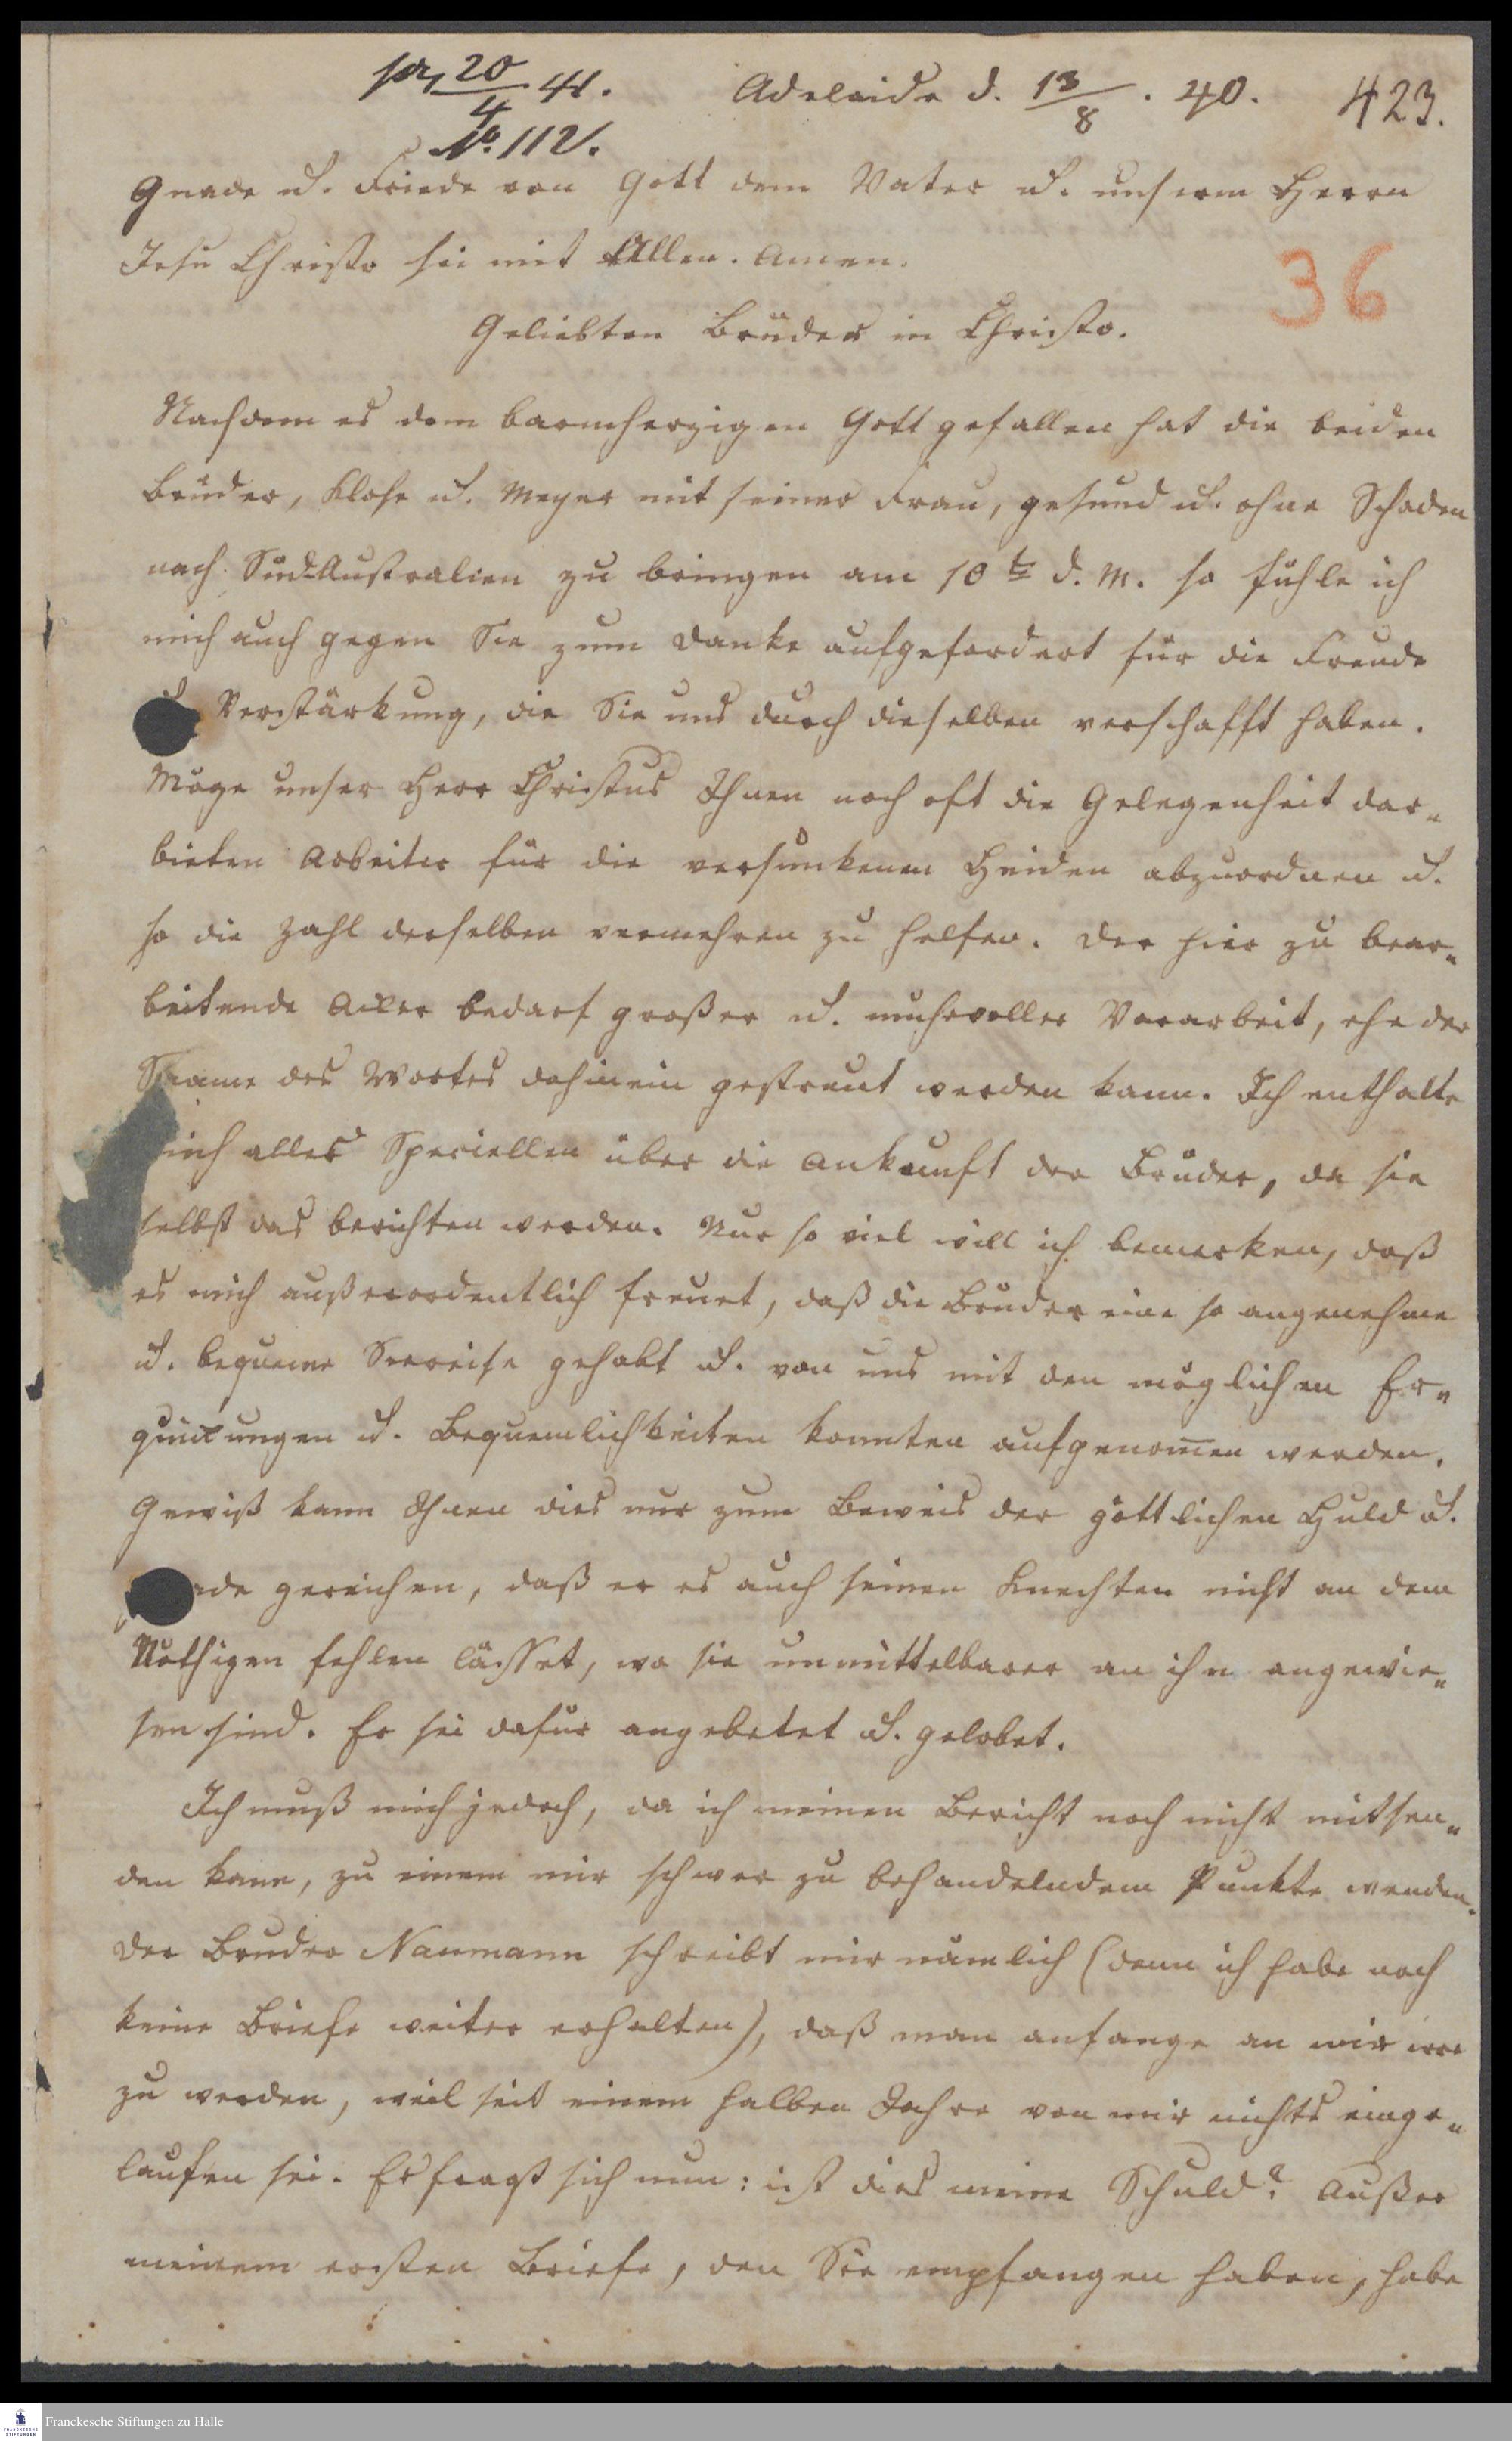 pr, 20/4 41.
Adelaide d. 13/8. 40.
423.
No. 112.
Gnade u. Friede von Gott dem Vater u. unserm Herrn
Jesu Christo sei mit Allen. Amen.
36
Geliebten Brüder in Christo.
Nachdem es dem barmherzigen Gott gefallen hat die beiden
Brüder, Klose u. Meyer mit seiner Frau, gesund u. ohne Schaden
nach Süd-Australien zu bringen am 10ts d. M. so fühle ich
mich auch gegen Sie zum Danke aufgefordert für die Freude
u. Verstärkung, die Sie uns durch dieselben verschafft haben.
Möge unser Herr Christus Ihnen noch oft die Gelegenheit dar-
bieten Arbeiter für die versunkenen Heiden abzuordnen u.
so die Zahl derselben vermehren zu helfen. Der hier zu bear-
beitende Acker bedarf großer u. muhevoller Vorarbeit, ehe der
Saame des Wortes dahinein gestreut werden kann. Ich enthalte
mich alles Speciellen über die Ankunft der Brüder, da sie
selbst das berichten werden. Nur so viel will ich bemerken, daß
es mich außerordentlich freuet, daß die Bruder eine so angenehme
u. bequeme Seereise gehabt u. von uns mit den möglichen Er-
quickungen u. Bequemlichkeiten konnten aufgenomen werden.
Gewiß kann Ihnen dies nur zum Beweis der göttlichen Huld u.
ade gereichen, daß er es auch seinen Knechten nicht an dem
Nöthigen fehlen lässet, wo sie unmittelbarer an ihn angewie-
sen sind. Er sei dafür angebetet u. gelobet.
Ich muß mich jedoch, da ich meinen Bericht noch nicht mitsen-
den kann, zu einem mir schwer zu behandelndem Punkte wenden.
Der Bruder Naumann schreibt mir nämlich (denn ich habe noch
keine Briefe weiter erhalten), daß man anfange an mir irre
zu werden, weil seit einem halben Jahre von mir nichts einge-
laufen sei. Es fragt sich nun: ist dies meine Schuld? Außer
meinem ersten Briefe, den Sie empfangen haben, habe
Franckesche Stiftungen zu Halle